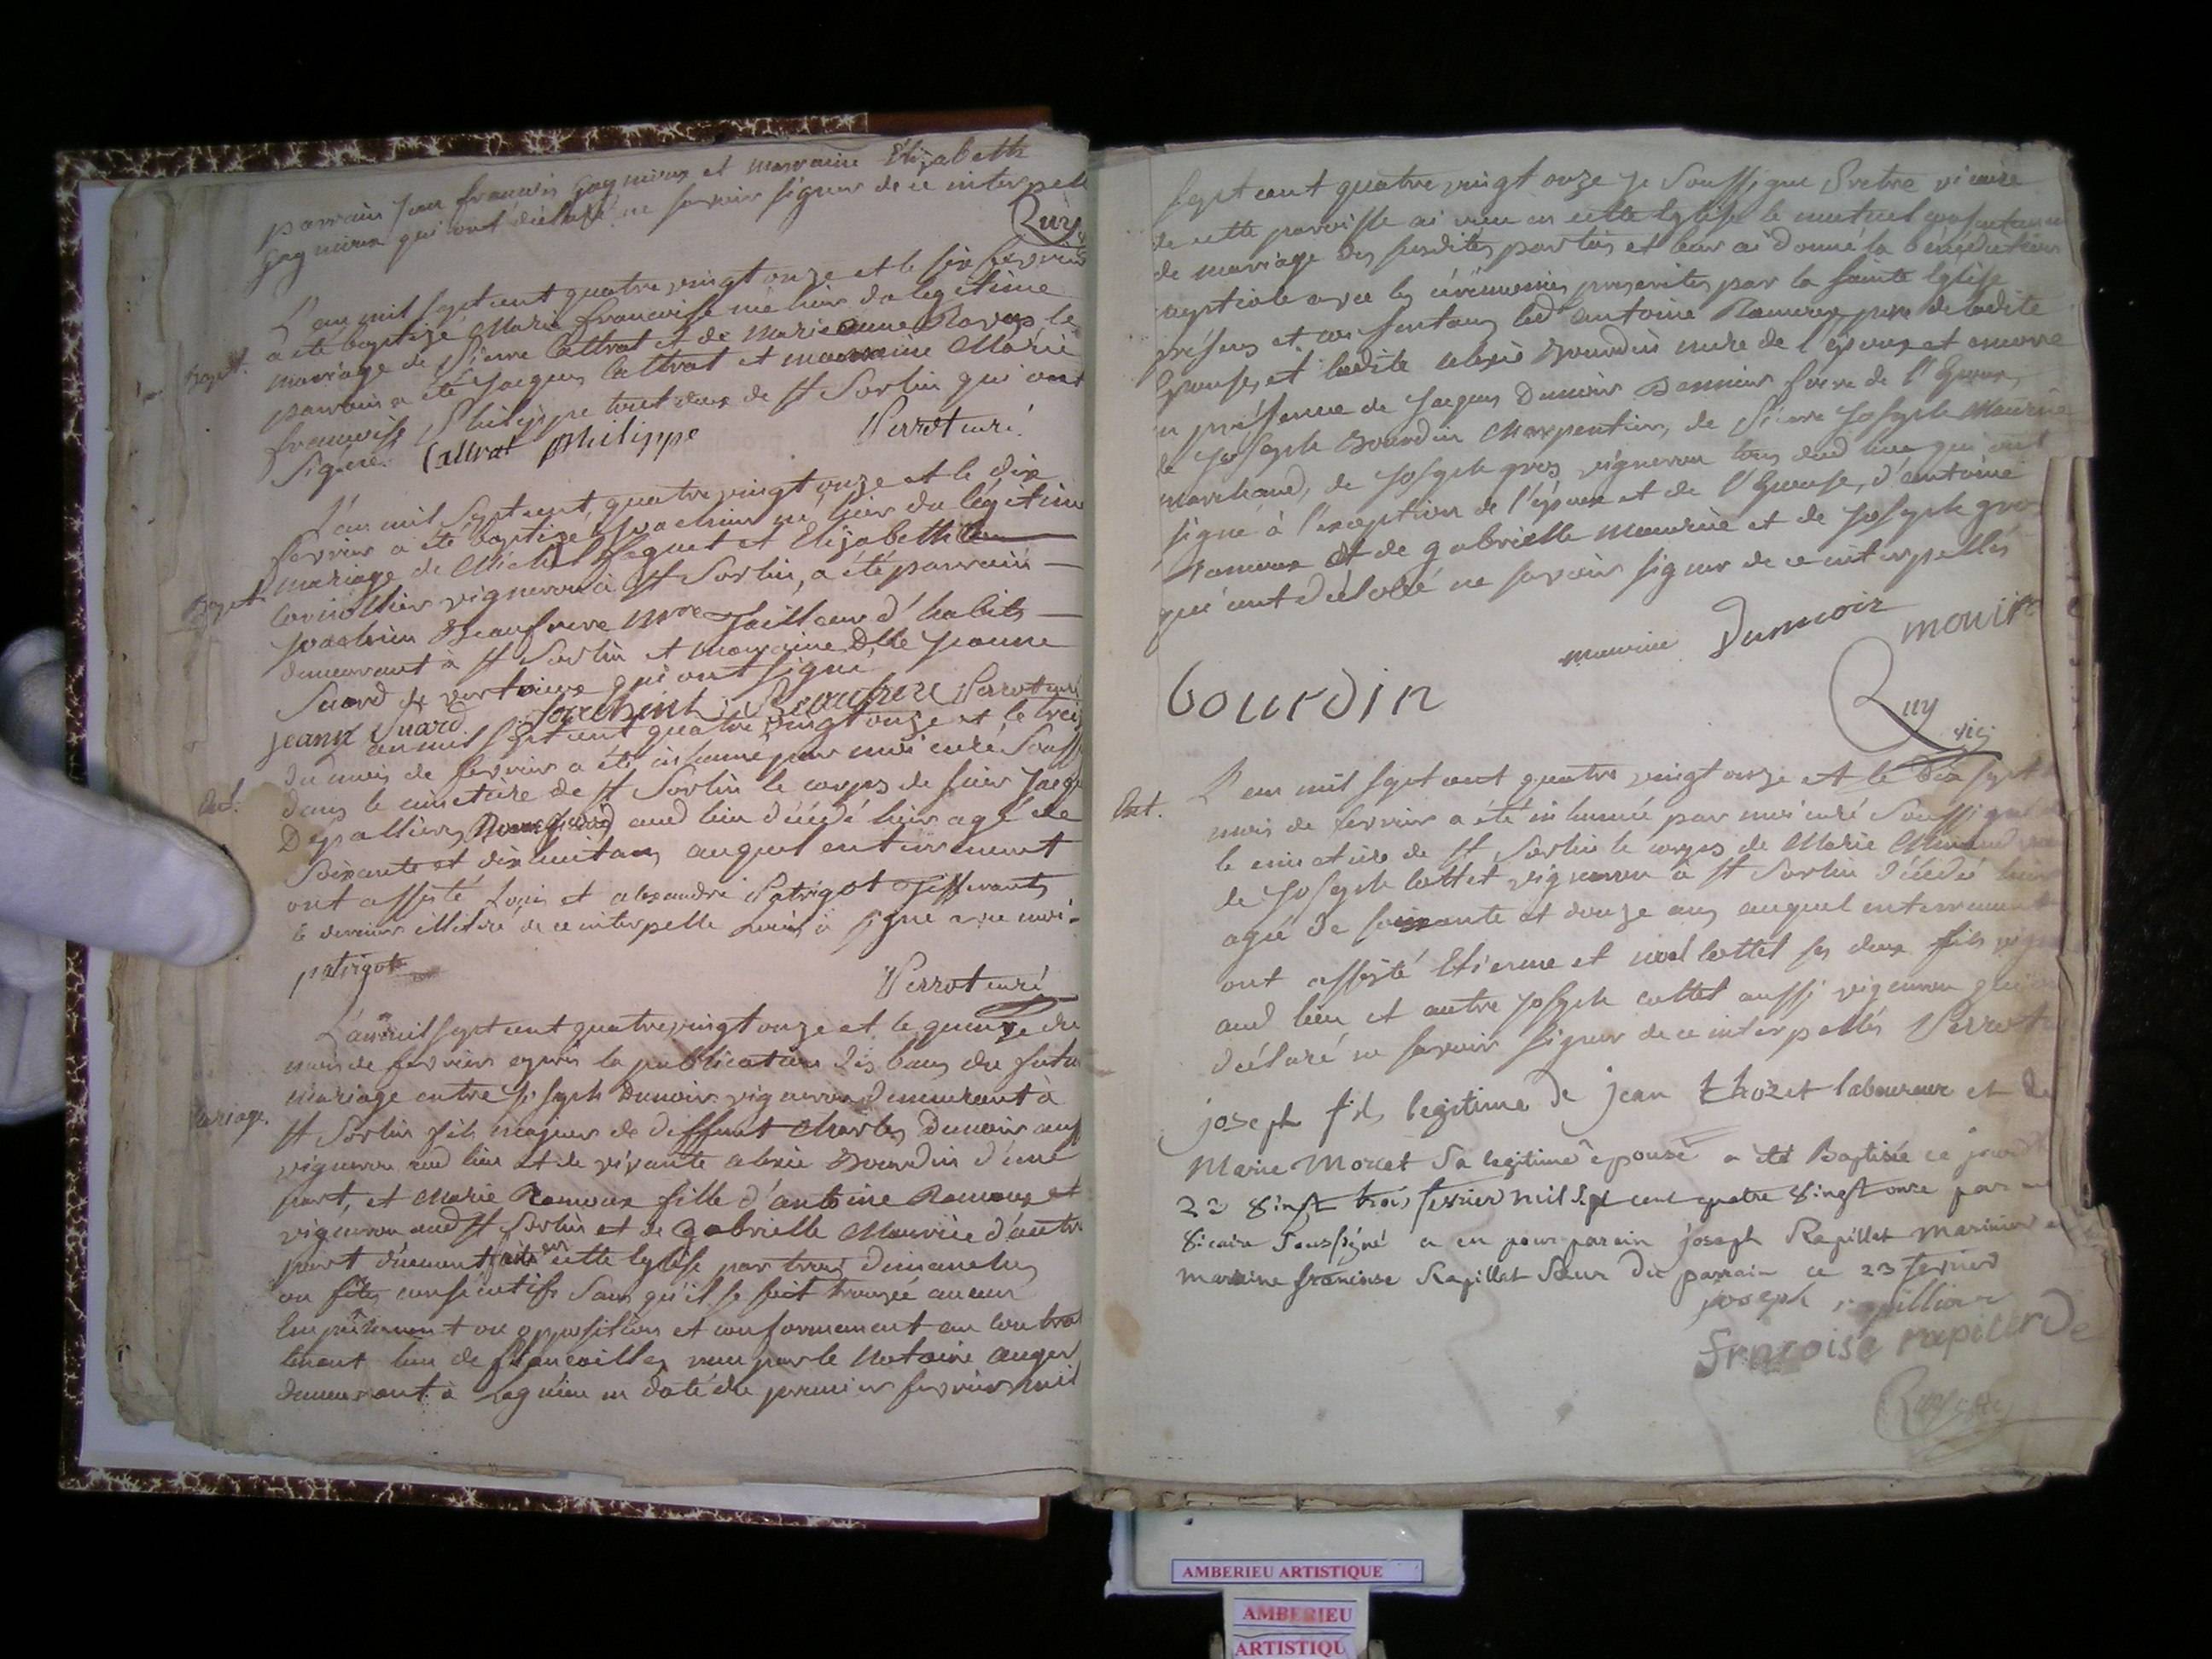 parrain jean françois gagnieux et marraine Elizabeth
gagnieux qui ont déclaré ne savoir signer de ce interpell
Ruy
L'an mil sept cent quatre vingt onze et le six fevrier
Bapt. a été baptizé Marie françoise née hier du legitime
mariage de Pierre Cattrat et de Marieanne Ravas le
parrain a été jacques Cattrat et marraine Marie
françoise Philippe tout deux de st Sorlin qui ont
signé. Cattrat philippe Perrot curé
L'an mil sept cent quatre vingt onze et le dix
fevrier a été baptizé joachim né hier du légitime
Bapt. mariage de Michel et Elizabeth
vigneron à st Sorlin, a été parrain
joachim Beaufrere Mre Tailleur d'habits
demeurant a st Sorlin et marraine Dlle jeanne
Suard de qui ont signé
jeann Suard joachim Beaufrere Perrot curé
L'an mil sept cent quatre vingt onze et le treiz
du mois de fevrier a été inhumé par moi curé Souss
Ent. dans le cimetière de st Sorlin le corps de sieur jacq
Depallier aud lieu décédé hier agé de
Soixante et dix huit ans auquel enterrement
ont assisté Louis et alexandre Patrigot
le dernier illitéré de ce interpelle Louis a signé avec moi
patrigot
Perrot curé
L'an mil sept cent quatre vingt onze et le quinze du
mois de fevrier après la publication des bans du futur
mariage entre joseph Dunoir vigneron demeurant à
Mariage. st Sorlin fils majeur de deffunt Charles Dunoir aussi
vigneron aud lieu et de vivante alexie Bourdin d'une
part, et Marie Ramoux fille d'antoine Ramoux et
vigneron aud st Sorlin et de gabrielle Maurice d'autre
part duement faite en cette Eglise par trois dimanches
ou fêtes consecutifs sans qu'il se soit trouvé aucun
Empêchement ou opposition et conformement au contrat
tenant lieu de fiançailles reçu par le Notaire auger
demeurant à Lagnieu en date du premier fevrier mil
sept cent quatre vingt onze je soussigné Pretre vicaire
de cette paroisse ai reçu en cette Eglise le mutuel consentement
de mariage des susdites parties et leur ai donné la bénédiction
nuptiale avec les cérémonies prescrites par la sainte Eglise
présens et consentans led antoine Ramoux pere de ladite
Epouse, et ladite alexie Bourdin mere de l'époux et encore
en présence de jacques Dunoir frere de l'Epoux,
de joseph Bourdin charpentier, de Pierre joseph Maurice
marchand, de joseph gros vigneron tous dud lieu qui ont
signé à l'exception de l'époux et de l'Epouse, d'antoine
Ramoux et de gabrielle Maurice et de joseph gros
qui ont déclaré ne savoir signer de ce interpellés
maurice Dunoir
bourdin Ruy vic
Ent. L'an mil sept cent quatre vingt onze et le dix sept
mois de fevrier a été inhumée par moi curé Soussigné
le cimetière de st Sorlin le corps de Marie
de joseph Cottet vigneron à st Sorlin décédée hier
agée de soixante et douze ans auquel enterrement
ont assisté Etienne et noel Cottet ses deux fils
aud lieu et autre joseph Cottet aussi vigneron
déclaré ne savoir signer de ce interpellés Perrot
joseph fils legitime de jean thozet laboureur et de
Marie Morret Sa legitime épouse a été Baptisée ce
23 vingt trois fevrier mil sept cent quatre vingt onze par
vicaire soussigné a eu pour parain joseph Rapillet marinier
maraine françoise Rapillet Sœur du parrain ce 23 fevrier
joseph
françoise
Ruy vic
AMBERIEU ARTISTIQUE
AMBERIEU
ARTISTIQU